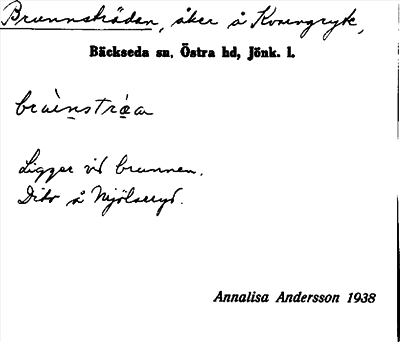 Brunnsträdan, åker å Kvarngryte,
Bäckseda sn, Östra hd, Jönk. l.
brùnstràa
Ligger vid brunnen.
Dito å Mjölseryd.
Annalisa Andersson 1938